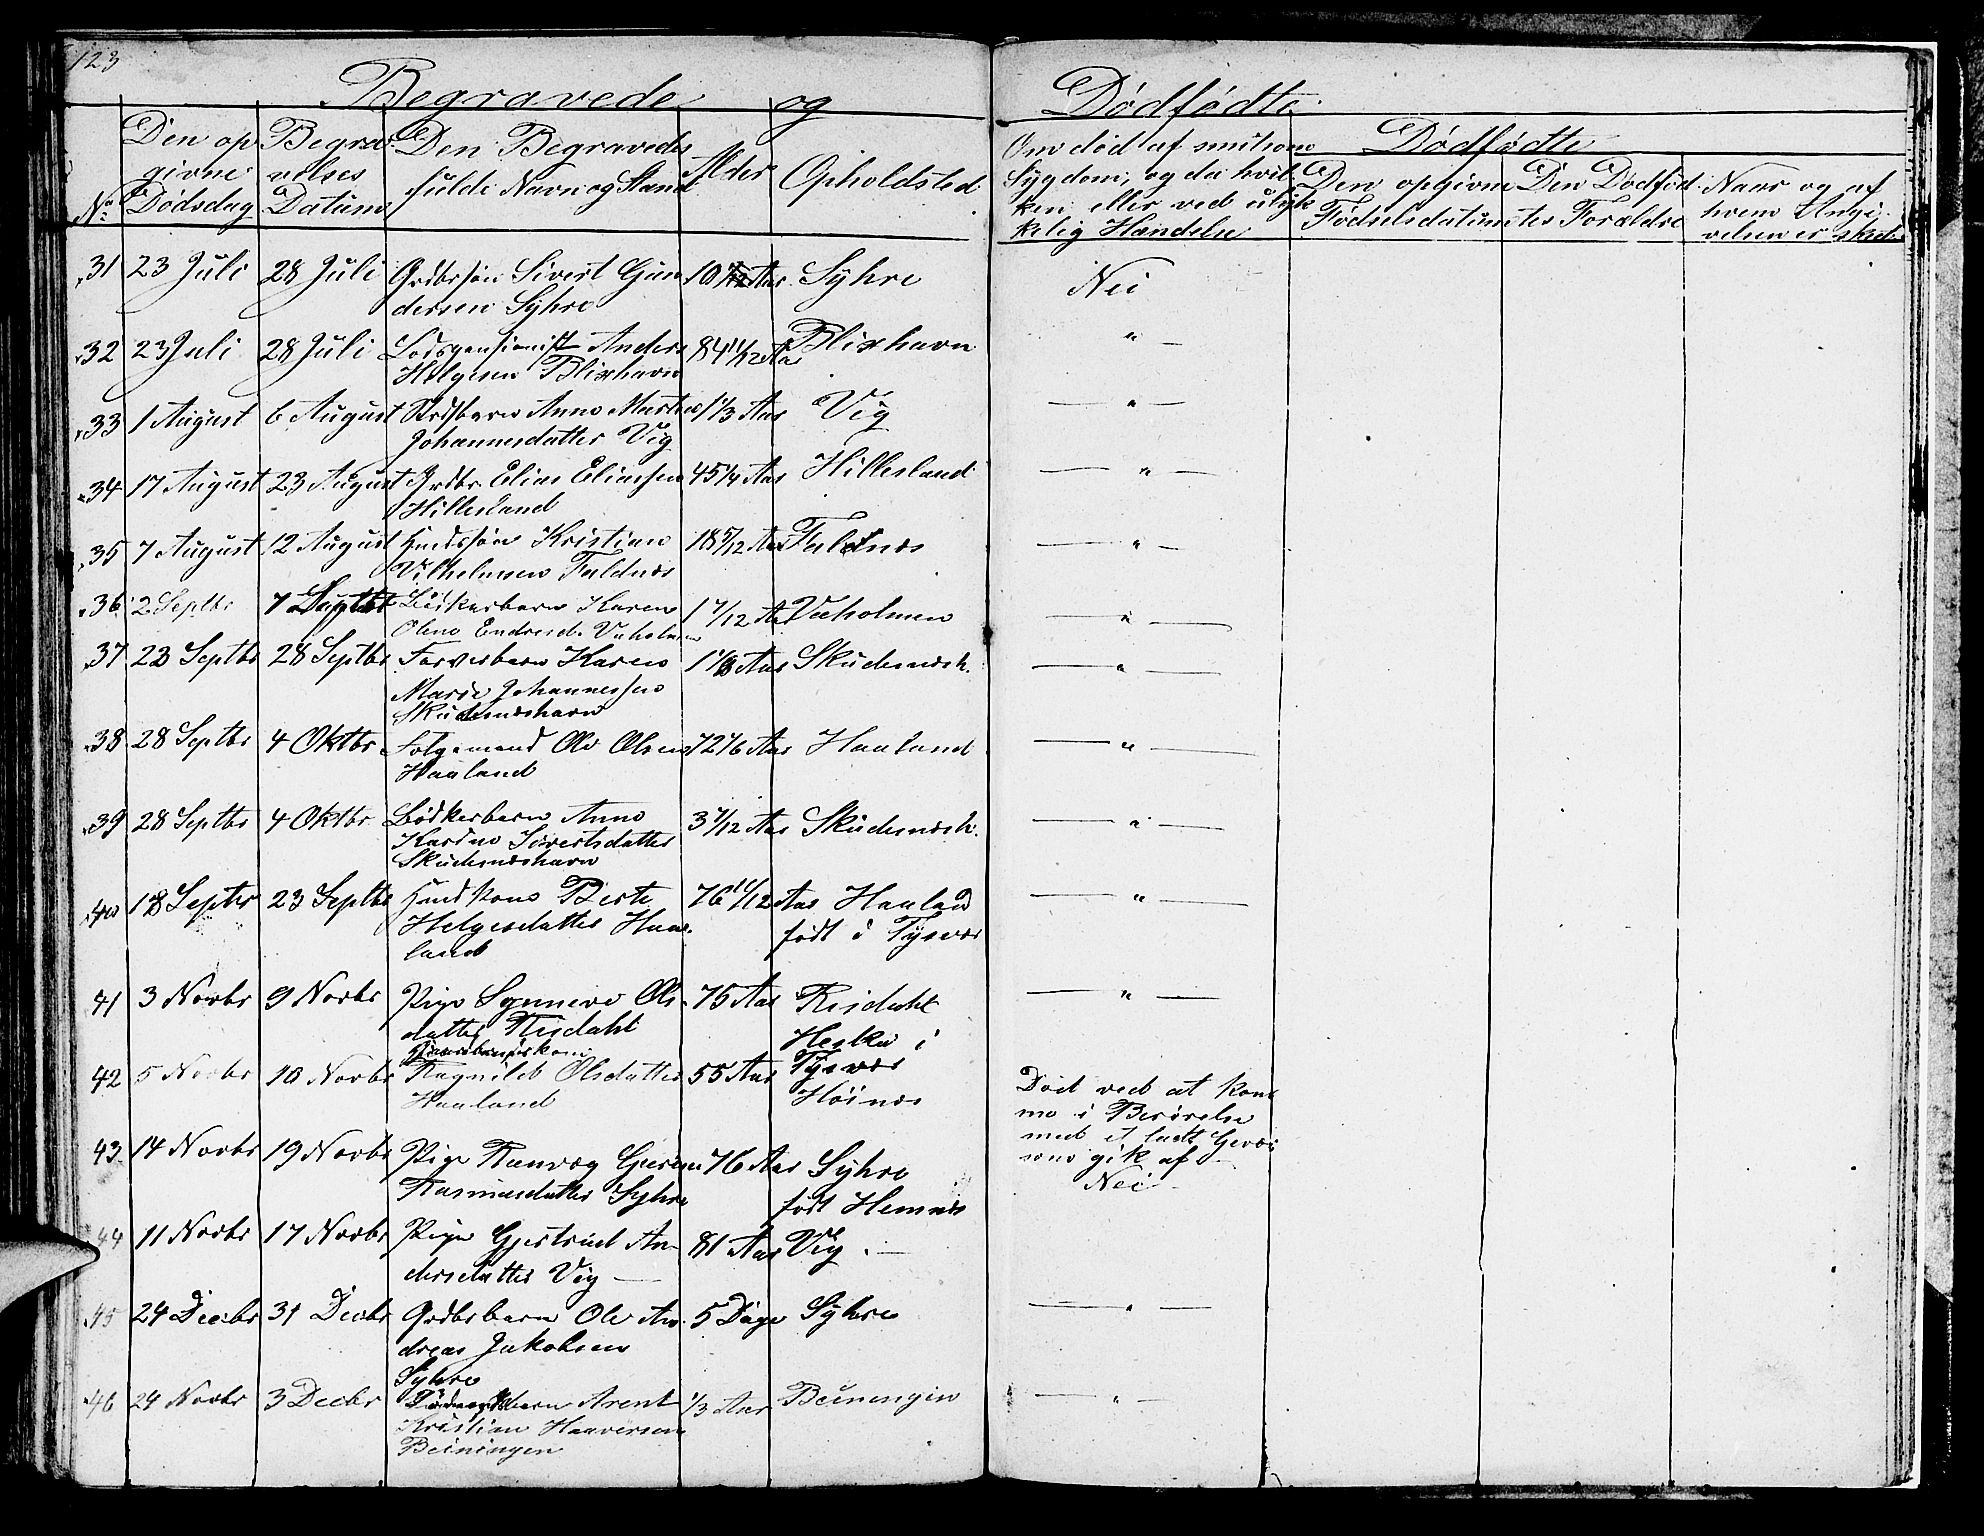 123
Begravede og Dødfødte.
No. Den opgivne Dødsdag Begravelses Datum Den Begravedes fulde Navn og Stand Alder Opholdsted Om død af smitsom Sygdom, og da hvilken eller ved ulykkelig Hændelse
Dødfødte
Den opgivne Fødselsdatum Den Dødfødtes Forældre Naar og af hvem Angivelsen er skeet
31 23 Juli 28 Juli Grdbrsøn Sivert Gun 10 Aar Syhre Nei
dersen Syhre
32 23 Juli 28 Juli Lodspensionist Anders 84 11/12 Aar Blixhavn " —
Helgesen Blixhavn
33 1 August 6 August Anne Martine 1 1/3 Aar Vig — " —
Johannesdatter Vig
34 17 August 23 August Grdbr Elias Eliassen 45 1/4 Aar Hillesland — " —
Hillesland
35 7 August 12 August Hmdssøn Kristian 18 5/12 Aar Faldnes — " —
Vilhelmsen Faldnæs
36 2 Septbr 7 Septbr Karen 1 7/12 Aar Vaholmen — " —
Oline Endresd. Vaholmen
37 23 Septbr 28 Septbr Farverbarn Karen 1 Aar Skudesnæsh. — " —
Marie Johannessen
Skudesnæshavn
38 28 Septbr 4 Oktbr Følgemand Ole Olsen 72 1/6 Aar Haaland — " —
Haaland
39 28 Septbr 4 Oktbr Bødkerbarn Anne 3 7/12 Aar Skudesnæsh. — " —
Karine Sivertsdatter
Skudesnæshavn
40 18 Septbr 23 Septbr Hmdskone Berte 76 11/12 Aar Haaland — " —
Helgesdatter Haa- født i Tysvær
land
41 3 Novbr 9 Novbr Pige Synneve Ols- 75 Aar Risdahl — " —
datter Risdahl Hesku i
42 5 Novbr 10 Novbr Ragnild Olsdatter 55 Aar Tysvær Død ved at kom
Haaland Høinæs me i Berørelse
med et ladt Gevær
som gik af
43 14 Novbr 19 Novbr Pige Ranveg Gurine 76 Aar Syhre Nei
Rasmusdatter Syhre født Hemnes
44 11 Novbr 17 Novbr Pige Gjertrud An- 81 Aar Vig —
dersdatter Vig —
45 24 Decbr 31 Decbr Grdbrbarn Ole An- 5 Dage Syhre — " —
dreas Jakobsen
Syhre
46 24 Novbr 3 Decbr Arent 1/3 Aar Beiningen — " —
Kristian Haaversen
Beiningen